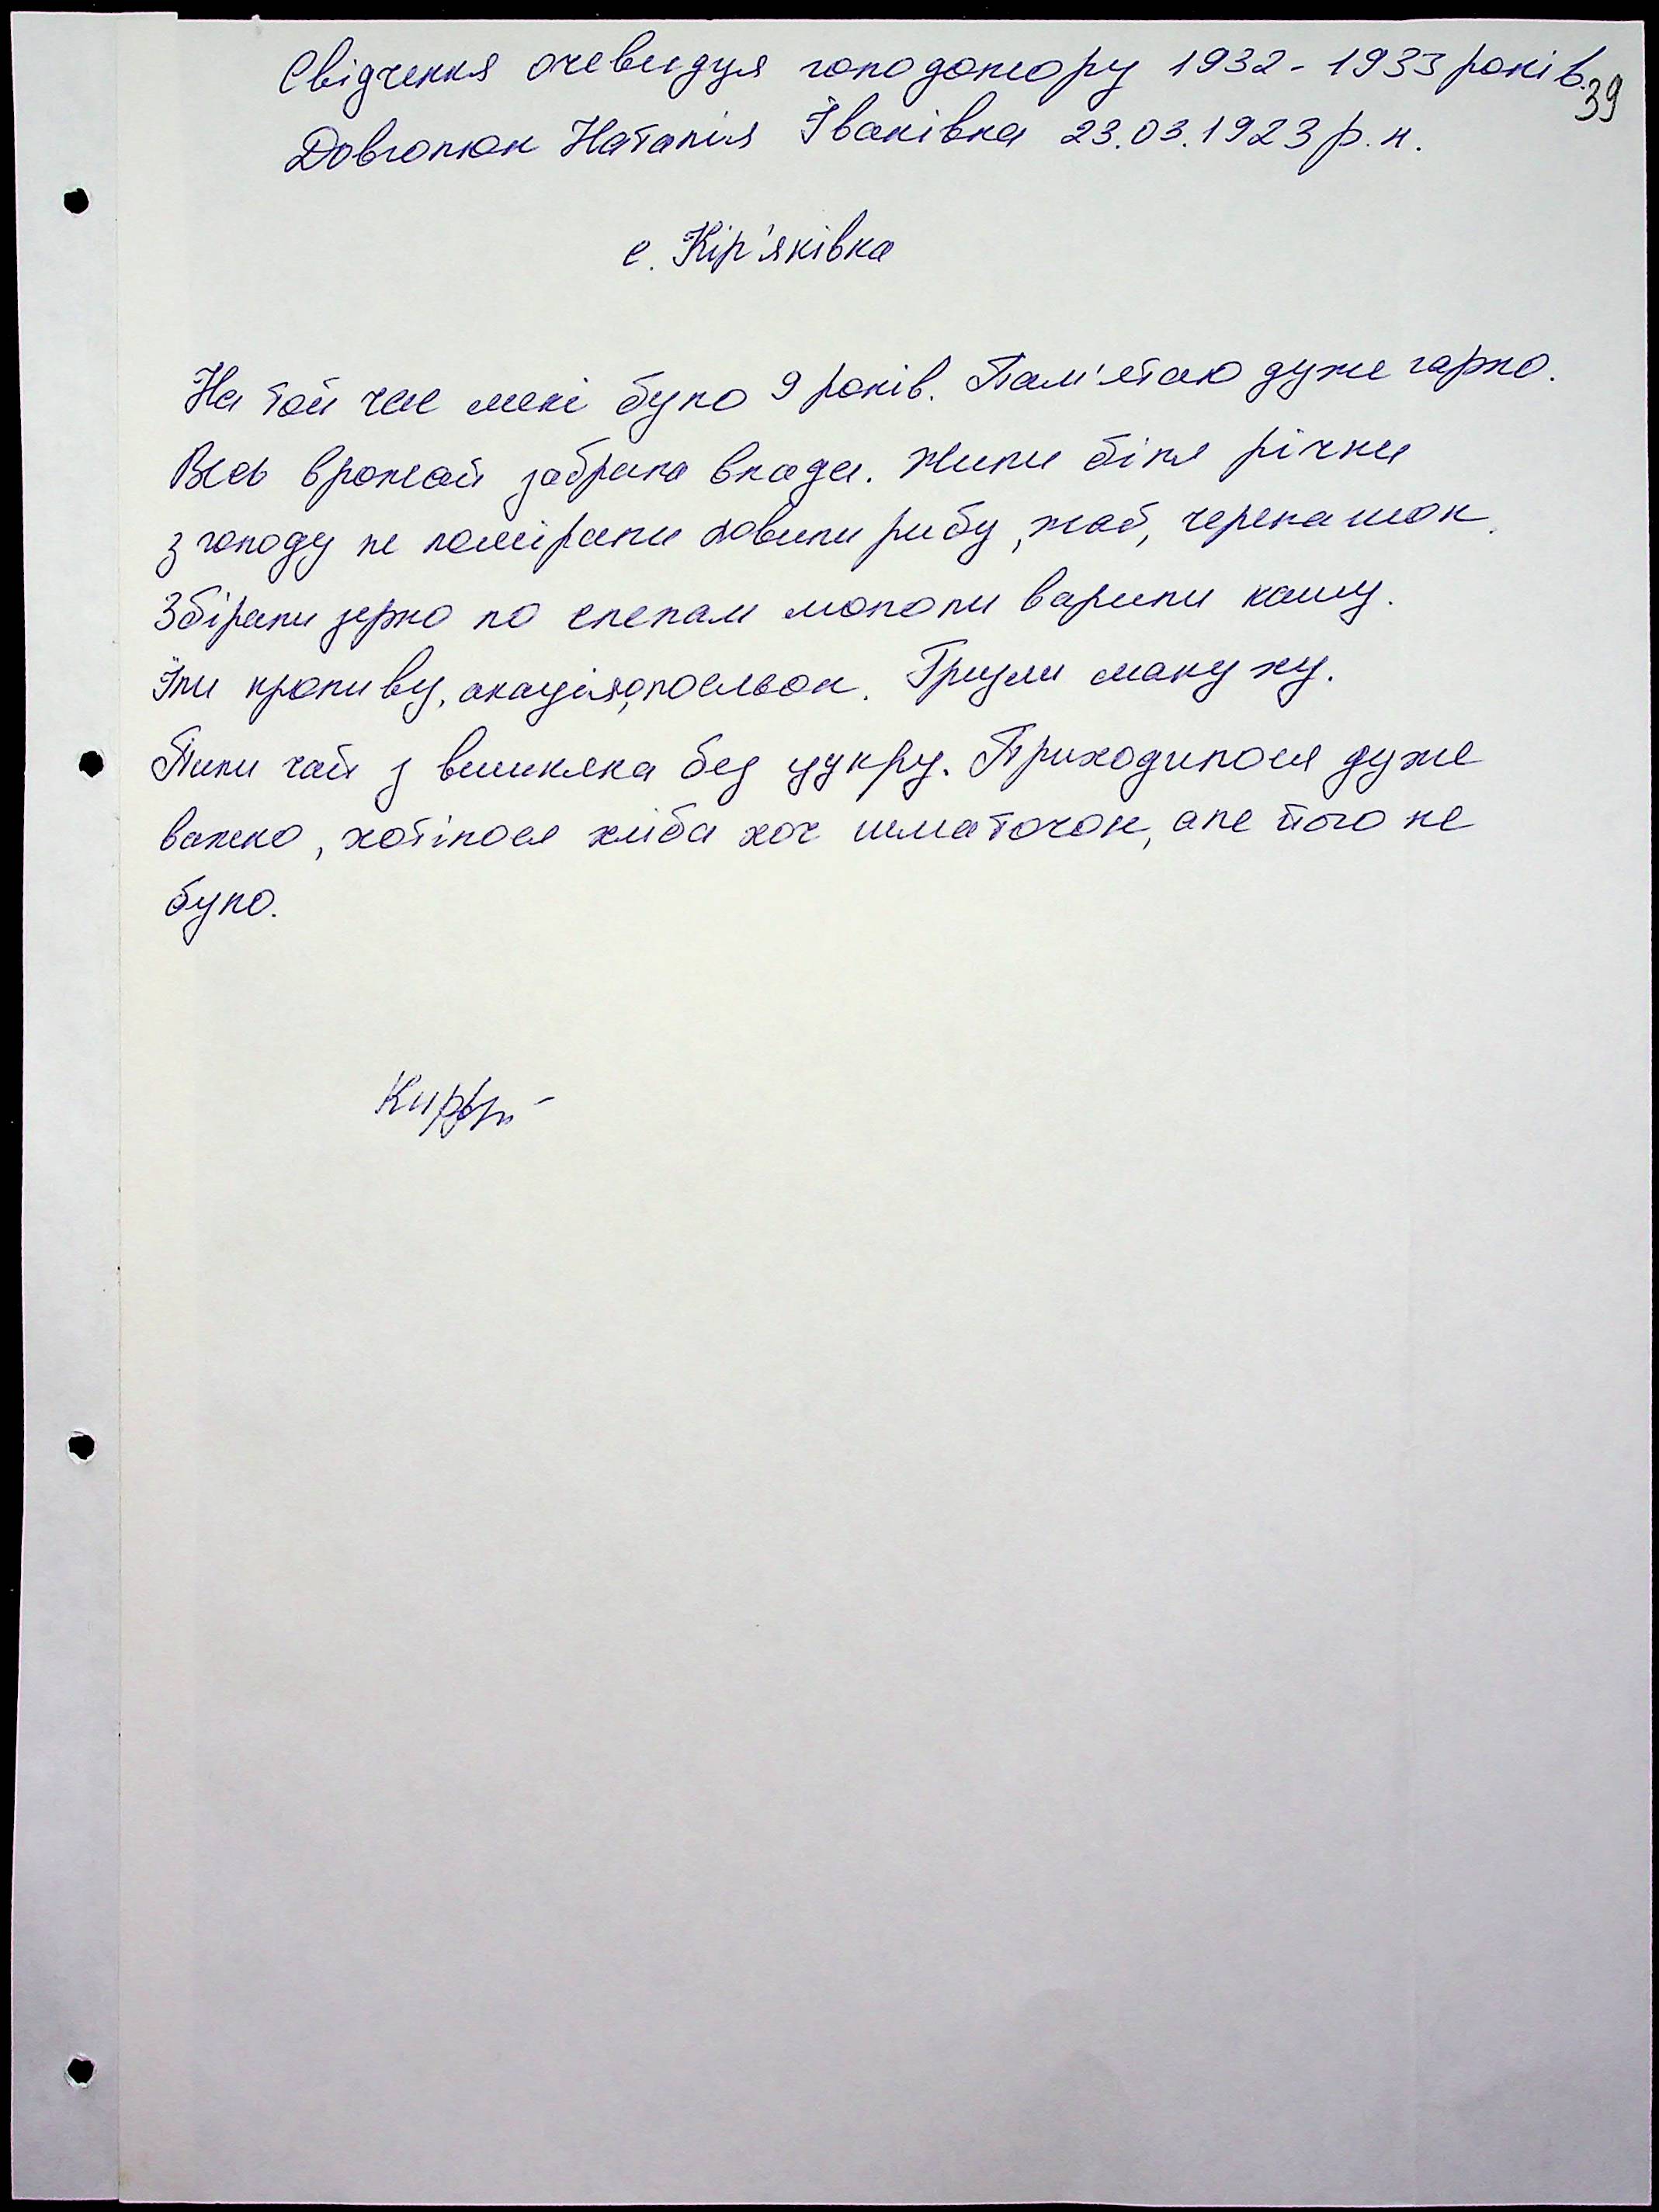 Свідчення очевидця голодомору 1932 - 1933 років.
39
Довгополюк Наталія Іванівна 23.03.1923 р. н.
с. Кір'яківка
На той час мені було 9 років. Пам'ятаю дуже гарно.
Весь врожай забрала влада. Жили біля річки
з голоду не помірали ловили рибу, жаб, черепашок.
Збірали зерно по степам мололи варили кашу.
Їли кропиву, акацію, Гризли макуху.
Пили чай з вишняка без цукру. Приходилося дуже
важко, хотілося хліба хоч шматочок, але його не
було.